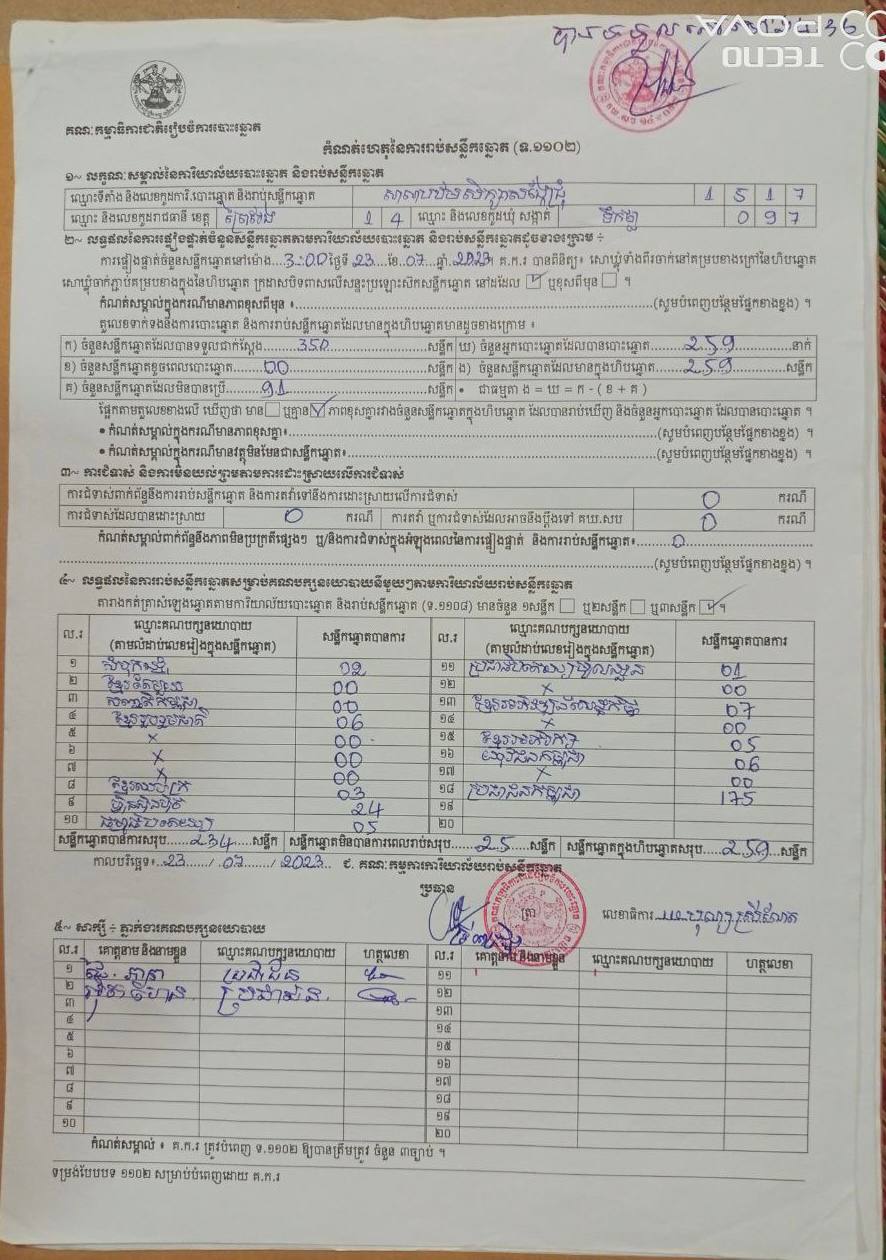 គណៈកម្មាធិការជាតិរៀបចំការបោះឆ្នោត
កំណត់ហេតុនៃការរាប់សន្លឹកឆ្នោត (ទ.១១០២)
១~ លក្ខណៈសម្គាល់នៃការិយាល័យបោះឆ្នោត និងរាប់សន្លឹកឆ្នោត
ឈ្មោះទីតាំង និងលេខកូដការិ.បោះឆ្នោត និងរាប់សន្លឹកឆ្នោត 1 5 1 7
ឈ្មោះ និងលេខកូដរាជធានី ខេត្ត ព្រៃវែង 1 4 ឈ្មោះ និងលេខកូដឃុំ សង្កាត់ 0 9 7
២~ លទ្ធផលនៃការផ្ទៀងផ្ទាត់ចំនួនសន្លឹកឆ្នោតតាមការិយាល័យបោះឆ្នោត និងរាប់សន្លឹកឆ្នោតដូចខាងក្រោម ÷
ការផ្ទៀងផ្ទាត់ចំនួនសន្លឹកឆ្នោតនៅម៉ោង 3:00 ថ្ងៃទី 23 ខែ 07 ឆ្នាំ 2023 ។ គ.ក.រ បានពិនិត្យ៖ សោឃ្លុំទាំងពីរចាក់នៅគម្របខាងក្រៅនៃហិបឆ្នោត
សោឃ្លុំចាក់ភ្ជាប់គម្របខាងក្នុងនៃហិបឆ្នោត ក្រដាសបិទពាសលើសន្ទះប្រឡោះស៊កសន្លឹកឆ្នោត នៅដដែល ☑ ឬខុសពីមុន ☐ ។
កំណត់សម្គាល់ក្នុងករណីមានភាពខុសពីមុន ៖ (សូមបំពេញបន្ថែមផ្នែកខាងខ្នង) ។
តួលេខទាក់ទងនឹងការបោះឆ្នោត និងការរាប់សន្លឹកឆ្នោតដែលមានក្នុងហិបឆ្នោតមានដូចខាងក្រោម ៖
ក) ចំនួនសន្លឹកឆ្នោតដែលបានទទួលជាក់ស្តែង 350 សន្លឹក ឃ) ចំនួនអ្នកបោះឆ្នោតដែលបានបោះឆ្នោត 259 នាក់
ខ) ចំនួនសន្លឹកឆ្នោតខូចពេលបោះឆ្នោត 00 សន្លឹក ង) ចំនួនសន្លឹកឆ្នោតដែលមានក្នុងហិបឆ្នោត 259 សន្លឹក
គ) ចំនួនសន្លឹកឆ្នោតដែលមិនបានប្រើ 91 សន្លឹក • ជាធម្មតា ង = ឃ = ក - ( ខ + គ )
ផ្អែកតាមតួលេខខាងលើ ឃើញថា មាន ☐ ឬគ្មាន ☑ ភាពខុសគ្នារវាងចំនួនសន្លឹកឆ្នោតក្នុងហិបឆ្នោត ដែលបានរាប់ឃើញ និងចំនួនអ្នកបោះឆ្នោត ដែលបានបោះឆ្នោត ។
• កំណត់សម្គាល់ក្នុងករណីមានភាពខុសគ្នា៖ (សូមបំពេញបន្ថែមផ្នែកខាងខ្នង) ។
• កំណត់សម្គាល់ក្នុងករណីមានវត្ថុមិនមែនជាសន្លឹកឆ្នោត៖ (សូមបំពេញបន្ថែមផ្នែកខាងខ្នង) ។
៣~ ការជំទាស់ និងការមិនយល់ព្រមតាមការដោះស្រាយលើការជំទាស់
ការជំទាស់ពាក់ព័ន្ធនឹងការរាប់សន្លឹកឆ្នោត និងការតវ៉ាទៅនឹងការដោះស្រាយលើការជំទាស់ 0 ករណី
ការជំទាស់ដែលបានដោះស្រាយ 0 ករណី ការតវ៉ា ឬការជំទាស់ដែលអាចនឹងប្តឹងទៅ គឃ.សប 0 ករណី
កំណត់សម្គាល់ពាក់ព័ន្ធនឹងភាពមិនប្រក្រតីផ្សេងៗ ឬ/និងការជំទាស់ក្នុងអំឡុងពេលនៃការផ្ទៀងផ្ទាត់ និងការរាប់សន្លឹកឆ្នោត៖ 0
(សូមបំពេញបន្ថែមផ្នែកខាងខ្នង) ។
៤~ លទ្ធផលនៃការរាប់សន្លឹកឆ្នោតសម្រាប់គណបក្សនយោបាយនីមួយៗតាមការិយាល័យរាប់សន្លឹកឆ្នោត
តារាងកត់ត្រាសំឡេងឆ្នោតតាមការិយាល័យបោះឆ្នោត និងរាប់សន្លឹកឆ្នោត (ទ.១១០៨) មានចំនួន ១សន្លឹក ☐ ឬ២សន្លឹក ☐ ឬ៣សន្លឹក ☑ ។
ល.រ ឈ្មោះគណបក្សនយោបាយ (តាមលំដាប់លេខរៀងក្នុងសន្លឹកឆ្នោត) សន្លឹកឆ្នោតបានការ ល.រ ឈ្មោះគណបក្សនយោបាយ (តាមលំដាប់លេខរៀងក្នុងសន្លឹកឆ្នោត) សន្លឹកឆ្នោតបានការ
១ 02 ១១ 01
២ 00 ១២ x 00
៣ 00 ១៣ 07
៤ ខ្មែររួបរួមជាតិ 06 ១៤ x 00
៥ x 00 ១៥ 05
៦ x 00 ១៦ 06
៧ x 00 ១៧ x 00
៨ 03 ១៨ ប្រជាជនកម្ពុជា 175
៩ ហ៊្វុនស៊ិនប៉ិច 24 ១៩
១០ 05 ២០
សន្លឹកឆ្នោតបានការសរុប 234 សន្លឹក សន្លឹកឆ្នោតមិនបានការពេលរាប់សរុប 25 សន្លឹក សន្លឹកឆ្នោតក្នុងហិបឆ្នោតសរុប 259 សន្លឹក
កាលបរិច្ឆេទ៖ 23 / 07 / 2023 ជ. គណៈកម្មការការិយាល័យរាប់សន្លឹកឆ្នោត
ប្រធាន
ត្រា
លេខាធិការ
៥~ សាក្សី ÷ ភ្នាក់ងារគណបក្សនយោបាយ
ល.រ គោត្តនាម និងនាមខ្លួន ឈ្មោះគណបក្សនយោបាយ ហត្ថលេខា ល.រ គោត្តនាម និងនាមខ្លួន ឈ្មោះគណបក្សនយោបាយ ហត្ថលេខា
១ ប្រជាជន ១១
២ ប្រជាជន ១២
៣ ១៣
៤ ១៤
៥ ១៥
៦ ១៦
៧ ១៧
៨ ១៨
៩ ១៩
១០ ២០
កំណត់សម្គាល់ ៖ គ.ក.រ ត្រូវបំពេញ ទ.១១០២ ឱ្យបានត្រឹមត្រូវ ចំនួន ៣ច្បាប់ ។
ទម្រង់បែបបទ ១១០២ សម្រាប់បំពេញដោយ គ.ក.រ
TECNO
POVA